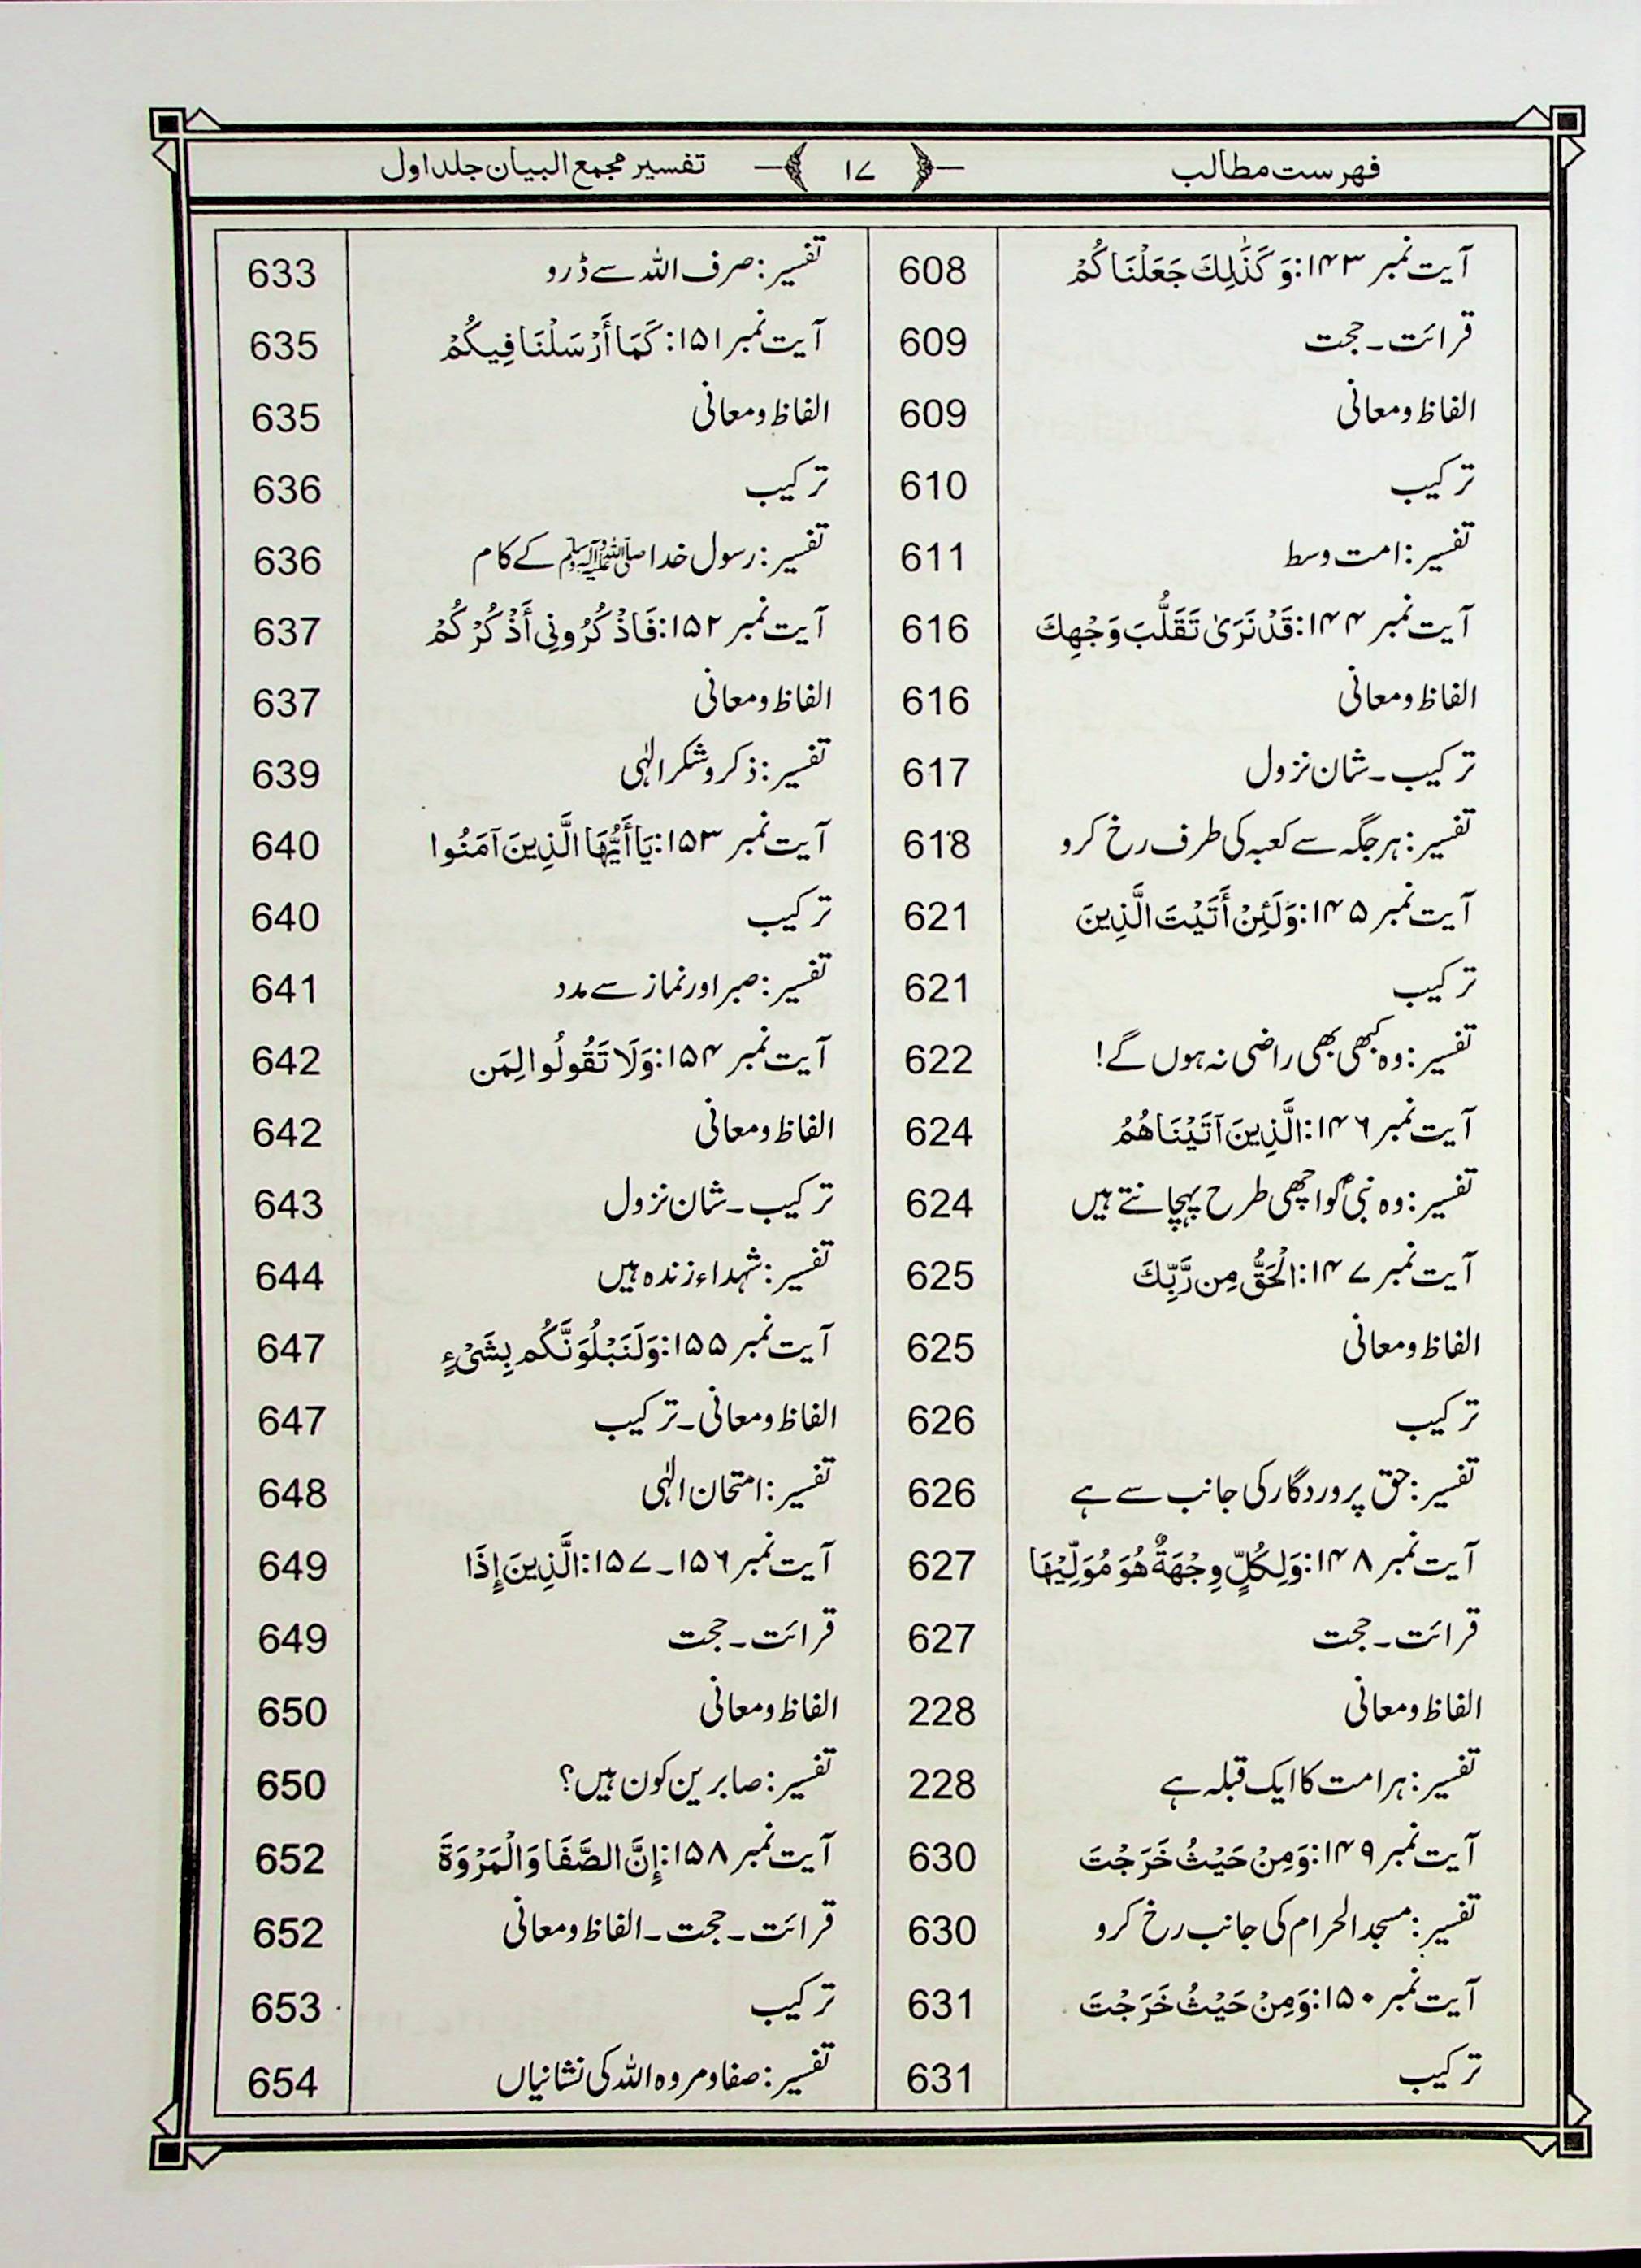 فہرست مطالب ۱۷ تفسیر مجمع البیان جلد اول
آیت نمبر ۱۴۳: وَكَذَٰلِكَ جَعَلْنَاكُمْ 608
قرائت۔حجت 609
الفاظ و معانی 609
ترکیب 610
تفسیر: امت وسط 611
آیت نمبر ۱۴۴: قَدْ نَرَىٰ تَقَلُّبَ وَجْهِكَ 616
الفاظ و معانی 616
ترکیب۔شان نزول 617
تفسیر: ہر جگہ سے کعبہ کی طرف رخ کرو 618
آیت نمبر ۱۴۵: وَلَئِنْ أَتَيْتَ الَّذِينَ 621
ترکیب 621
تفسیر: وہ کبھی بھی راضی نہ ہوں گے! 622
آیت نمبر ۱۴۶: الَّذِينَ آتَيْنَاهُمُ 624
تفسیر: وہ نبیؐ کو اچھی طرح پہچانتے ہیں 624
آیت نمبر ۱۴۷: الْحَقُّ مِن رَّبِّكَ 625
الفاظ و معانی 625
ترکیب 626
تفسیر: حق پروردگار کی جانب سے ہے 626
آیت نمبر ۱۴۸: وَلِكُلٍّ وِجْهَةٌ هُوَ مُوَلِّيْهَا 627
قرائت۔حجت 627
الفاظ و معانی 228
تفسیر: ہر امت کا ایک قبلہ ہے 228
آیت نمبر ۱۴۹: وَمِنْ حَيْثُ خَرَجْتَ 630
تفسیر: مسجد الحرام کی جانب رخ کرو 630
آیت نمبر ۱۵۰: وَمِنْ حَيْثُ خَرَجْتَ 631
ترکیب 631
تفسیر: صرف اللہ سے ڈرو 633
آیت نمبر ۱۵۱: كَمَا أَرْسَلْنَا فِيكُمْ 635
الفاظ و معانی 635
ترکیب 636
تفسیر: رسول خدا ﷺ کے کام 636
آیت نمبر ۱۵۲: فَاذْكُرُونِي أَذْكُرْكُمْ 637
الفاظ و معانی 637
تفسیر: ذکر و شکر الٰہی 639
آیت نمبر ۱۵۳: يَا أَيُّهَا الَّذِينَ آمَنُوا 640
ترکیب 640
تفسیر: صبر اور نماز سے مدد 641
آیت نمبر ۱۵۴: وَلَا تَقُولُوا لِمَن 642
الفاظ و معانی 642
ترکیب۔شان نزول 643
تفسیر: شہداء زندہ ہیں 644
آیت نمبر ۱۵۵: وَلَنَبْلُوَنَّكُم بِشَيْءٍ 647
الفاظ و معانی۔ترکیب 647
تفسیر: امتحان الٰہی 648
آیت نمبر ۱۵۶۔۱۵۷: الَّذِينَ إِذَا 649
قرائت۔حجت 649
الفاظ و معانی 650
تفسیر: صابرین کون ہیں؟ 650
آیت نمبر ۱۵۸: إِنَّ الصَّفَا وَالْمَرْوَةَ 652
قرائت۔حجت۔الفاظ و معانی 652
ترکیب 653
تفسیر: صفا و مروہ اللہ کی نشانیاں 654